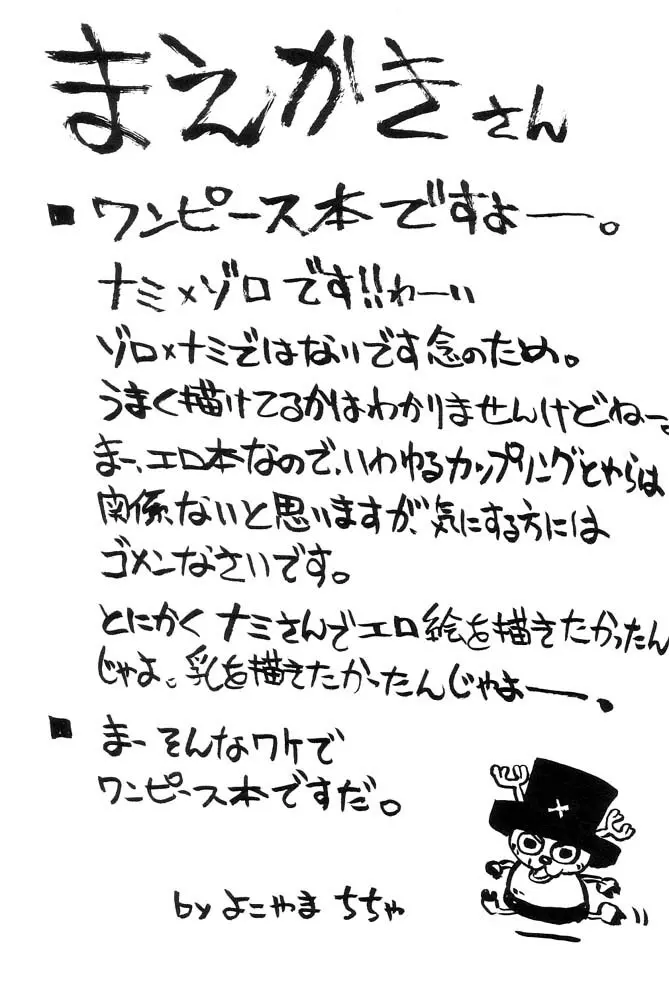 まえがきさん
■ ワンピース本ですよー。
ナミ×ゾロです!!わーい
ゾロ×ナミではないです念のため。
うまく描けてるかはわかりませんけどねー。
まー、エロ本なので、いわゆるカップリングとやらは
関係ないと思いますが、気にする方には
ゴメンなさいです。
とにかくナミさんでエロ絵を描きたかったん
じゃよ。乳を描きたかったんじゃよー。
■ まーそんなワケで
ワンピース本ですだ。
by よこやまちちゃ